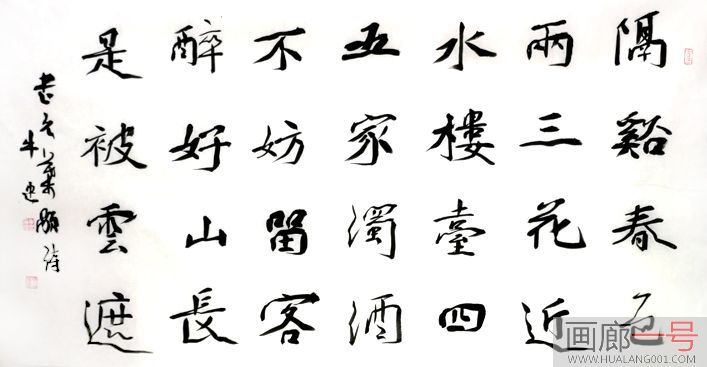 隔谿春色
兩三花近
水樓臺四
五家濁酒
不妨留客
醉好山長
是被雲遮
画廊一号
WWW.HUALANG001.COM